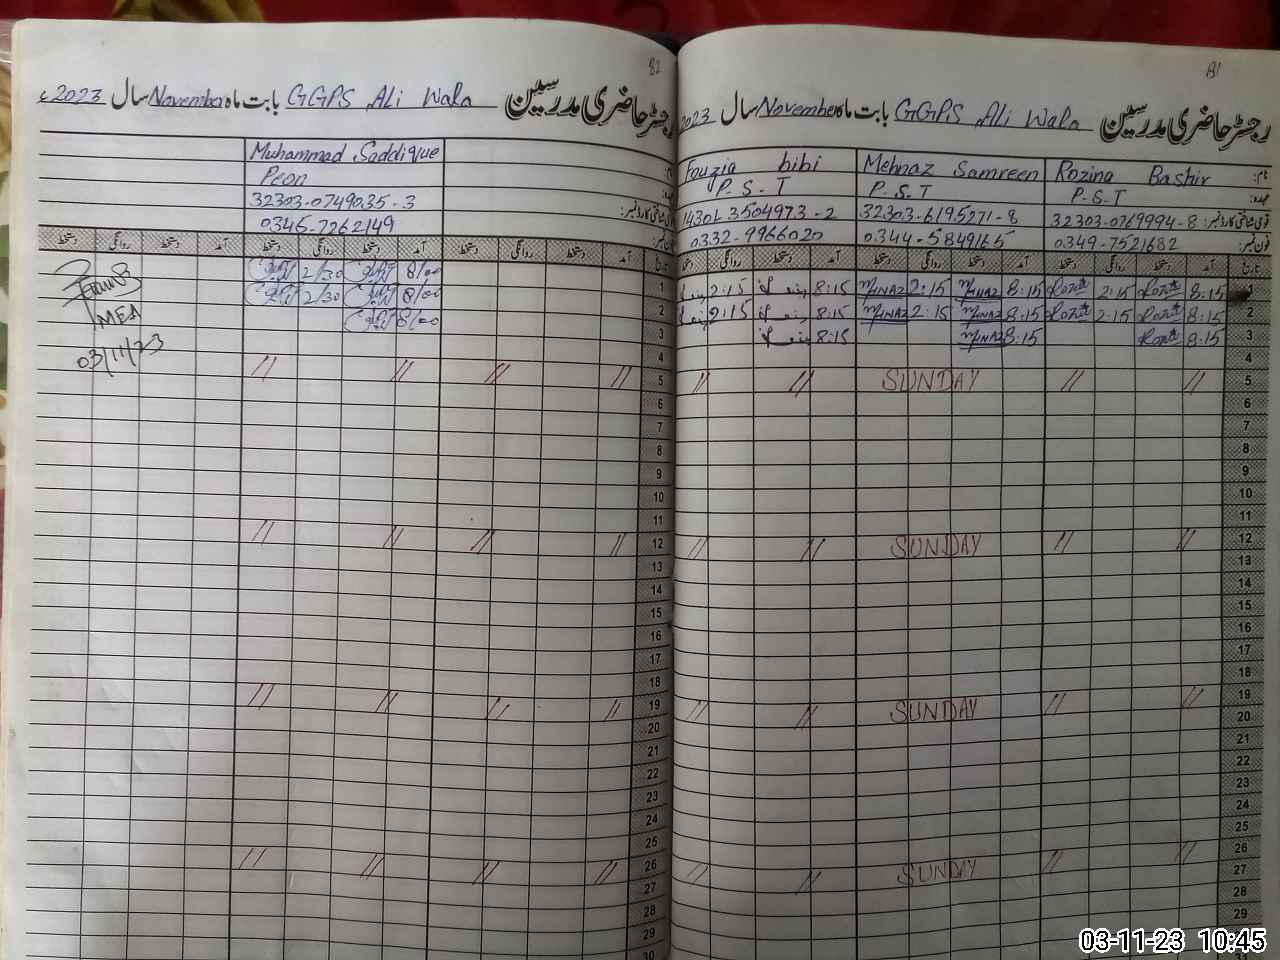 82
رجسٹر حاضری مدرسین GGPS Ali Wala بابت ماہ November سال 2023ء
Muhammad Saddique
Peon
32303-0749035-3
0345-7262149
تاریخ آمد دستخط روانگی دستخط آمد دستخط روانگی دستخط آمد دستخط روانگی دستخط
1 8/00 2/30
2 8/00 2/30
3 8/00
4
5 // // // //
6
7
8
9
10
11
12 // // // //
13
14
15
16
17
18
19 // // // //
20
21
22
23
24
25
26 // // // //
27
28
29
30
MEA
03/11/23
81
رجسٹر حاضری مدرسین GGPS Ali Wala بابت ماہ November سال 2023
نام: Rozina Bashir Mehnaz Samreen Fouzia bibi
عہدہ: P.S.T P.S.T P.S-T
قومی شناختی کارڈ نمبر: 32303-0769994-8 32303-6195271-8 3504973-2
فون نمبر: 0349-7521682 0344-5849165 0332-9966020
تاریخ آمد دستخط روانگی دستخط آمد دستخط روانگی دستخط آمد دستخط روانگی دستخط
1 8:15 2:15 8:15 2:15 8:15 2:15
2 8:15 2:15 8:15 2:15 8:15 2:15
3 8:15 8:15 8:15
4
5 // // SUNDAY // //
6
7
8
9
10
11
12 // // SUNDAY // //
13
14
15
16
17
18
19 // // SUNDAY // //
20
21
22
23
24
25
26 // // SUNDAY // //
27
28
29
31
03-11-23 10:45